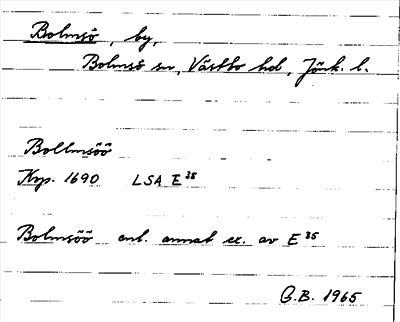 Bolmsö, by,
Bolmsö sn, Västbo hd, Jönk. l.
Bollmsöö
Kop. 1690 LSA E³⁵
Bolmsöö enl. annat ex. av E³⁵
G.B. 1965